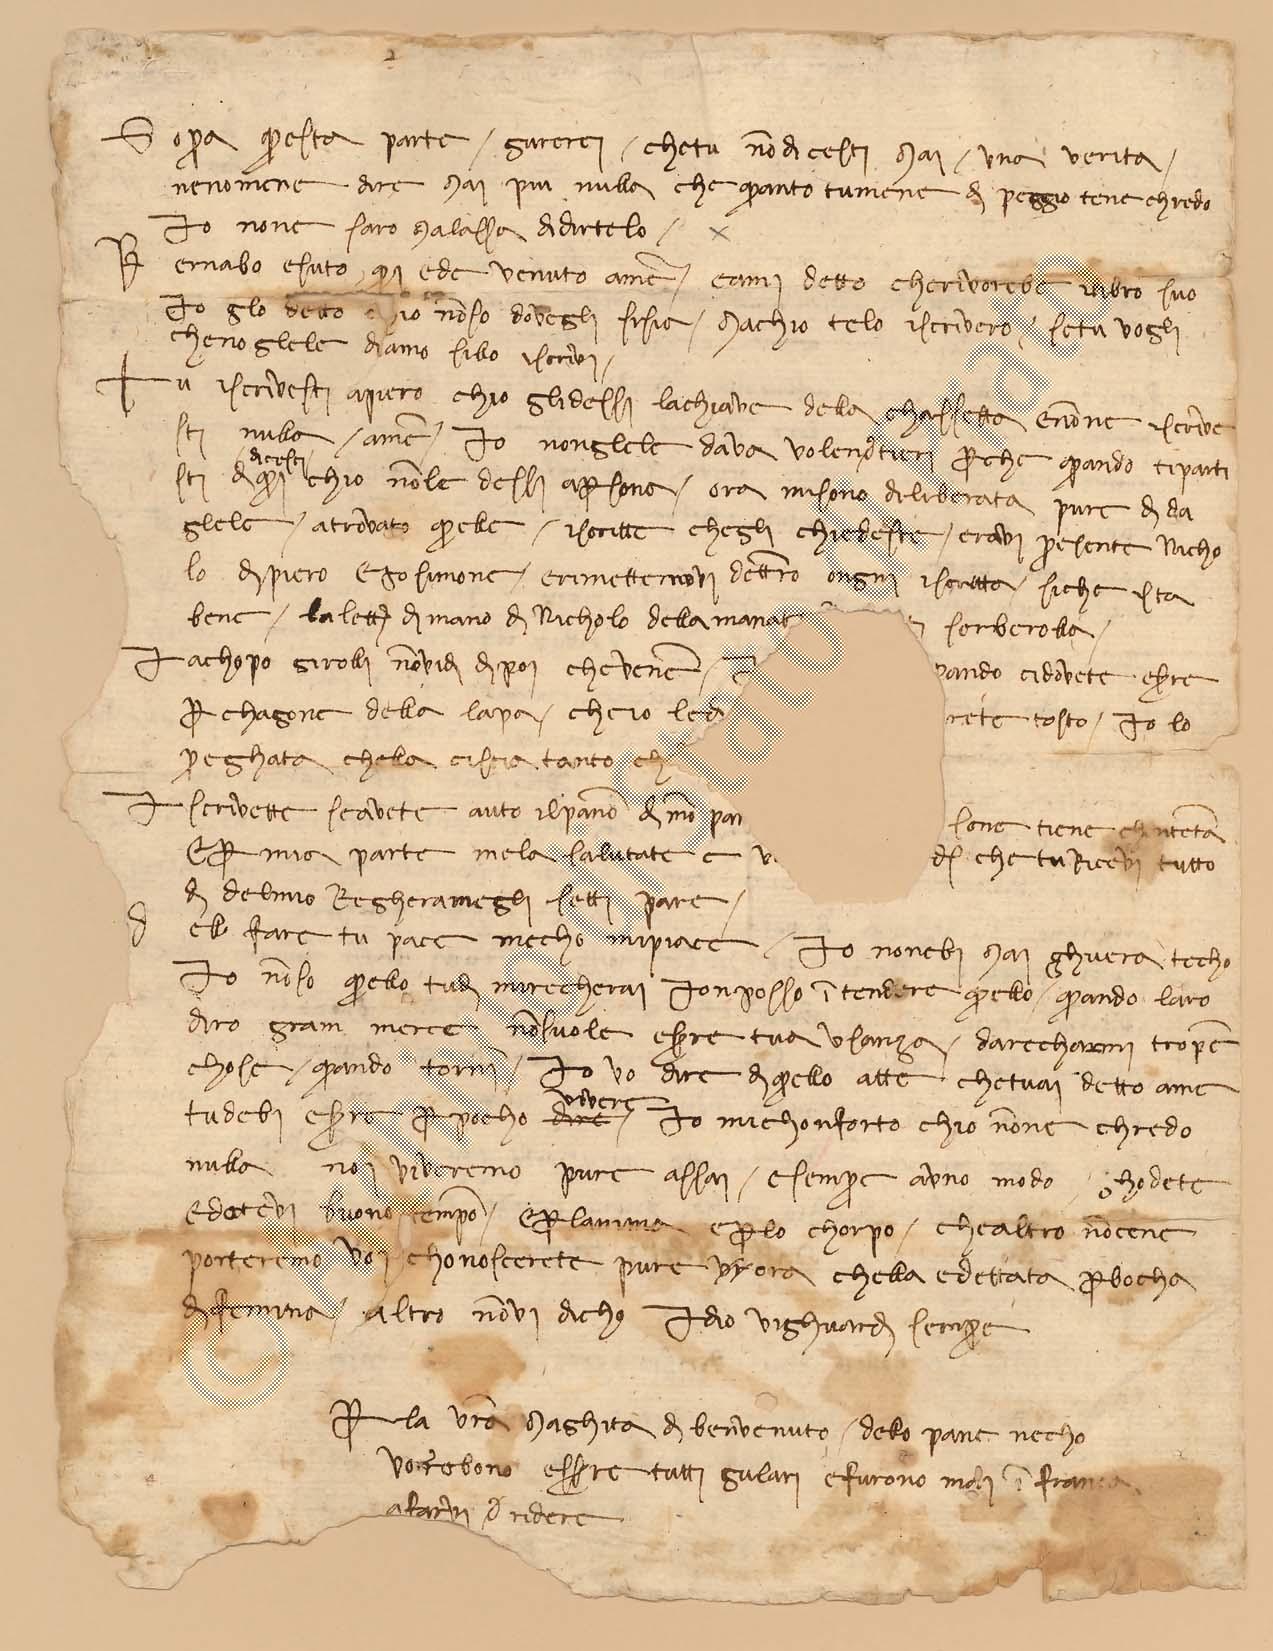 Sopra questa parte / gurerei / chetu nō dicesti mai / una verita /
nenonmene dire mai piu nulla che quanto tumene di peggio tene chredo
Io none faro malassa didirtelo / ×
Bernabo esuto qui ede venuto ame / eami detto cherivorebe ilibro suo
Io glo detto chio nōso dovegli sisia / machio telo iscrivero / setu vogli
chenoglele diamo sillo iscrivi /
Tu iscrivesti apiero chio glidessi lachiave della chassetta Enōne iscrive
sti nulla / ame / Io nonglele dava volentieri perche quando tiparti
dicesti
sti di qui chio nōle dessi apersona / ora misono diliberata pure di da
glele / atrovato quelle / iscritte chegli chiedeste / eravi presente Nicho
lo di piero Ego simone / erimettemovi dētro ongni iscritta / siche ista
bene / la letta di mano di Nicholo dellamanat serberolla /
Iachopo girolli nōvidi di poi chevene / I uando cidovete esere
per chagone della lapa / cheio le d rete tosto / Io lo
preghata chella cisia tanto ch
Iscrivette seavete auto ilpano di mō pan sone tiene chōteta
Eper mia parte mela salutate e v di chetu Ricevi tutto
di delmio Regheramegli setti pare /
del fare tu pace mecho mipiace / Io nonebi mai ghuera techo
Io nōso quello tudi mirecherai Ionposso ītendere quello / quando laro
diro gram merce nōsuole esere tua usanza / darecharmi tropē
chose / quando torni / Io vo dire di quello atte chetuai detto ame
vivere
tudebi esere per pocho dire / Io michonforto chio nōne chredo
nulla noi viveremo pure assai / esempre aūno modo / ghodete
Edatevi buono tempo / Eperlanima eperlo chorpo / chealtro nōcene
porteremo voi chonoscerete pure ora chella edettata per bocha
di femina / altro nōvi dicho Idio vighuardi sempre
Per la vrā margherita di benvenuto / dello pane necho
vorebono essere tutti gulari efurono mali ī franca
afarvi ridere